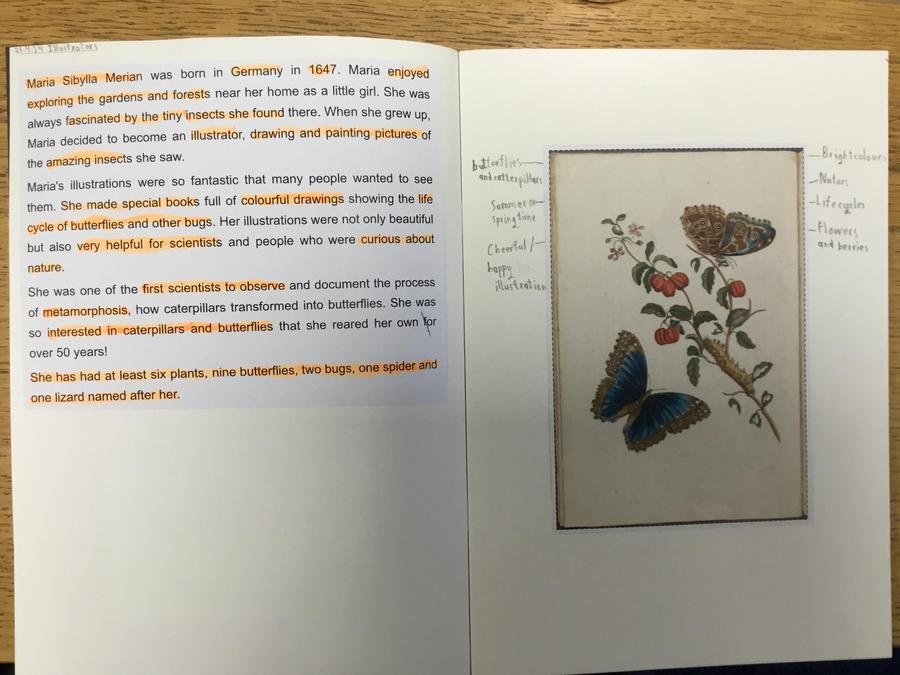 22.4.24 Illustrators
Maria Sibylla Merian was born in Germany in 1647. Maria enjoyed
exploring the gardens and forests near her home as a little girl. She was
always fascinated by the tiny insects she found there. When she grew up,
Maria decided to become an illustrator, drawing and painting pictures of
the amazing insects she saw.
Maria's illustrations were so fantastic that many people wanted to see
them. She made special books full of colourful drawings showing the life
cycle of butterflies and other bugs. Her illustrations were not only beautiful
but also very helpful for scientists and people who were curious about
nature.
She was one of the first scientists to observe and document the process
of metamorphosis, how caterpillars transformed into butterflies. She was
so interested in caterpillars and butterflies that she reared her own for
over 50 years!
She has had at least six plants, nine butterflies, two bugs, one spider and
one lizard named after her.
butterflies
and catterpillars
Summer or
spring time
Cheerful /
happy
illustration
Bright colours
Natur
Life cycles
Flowers
and berries